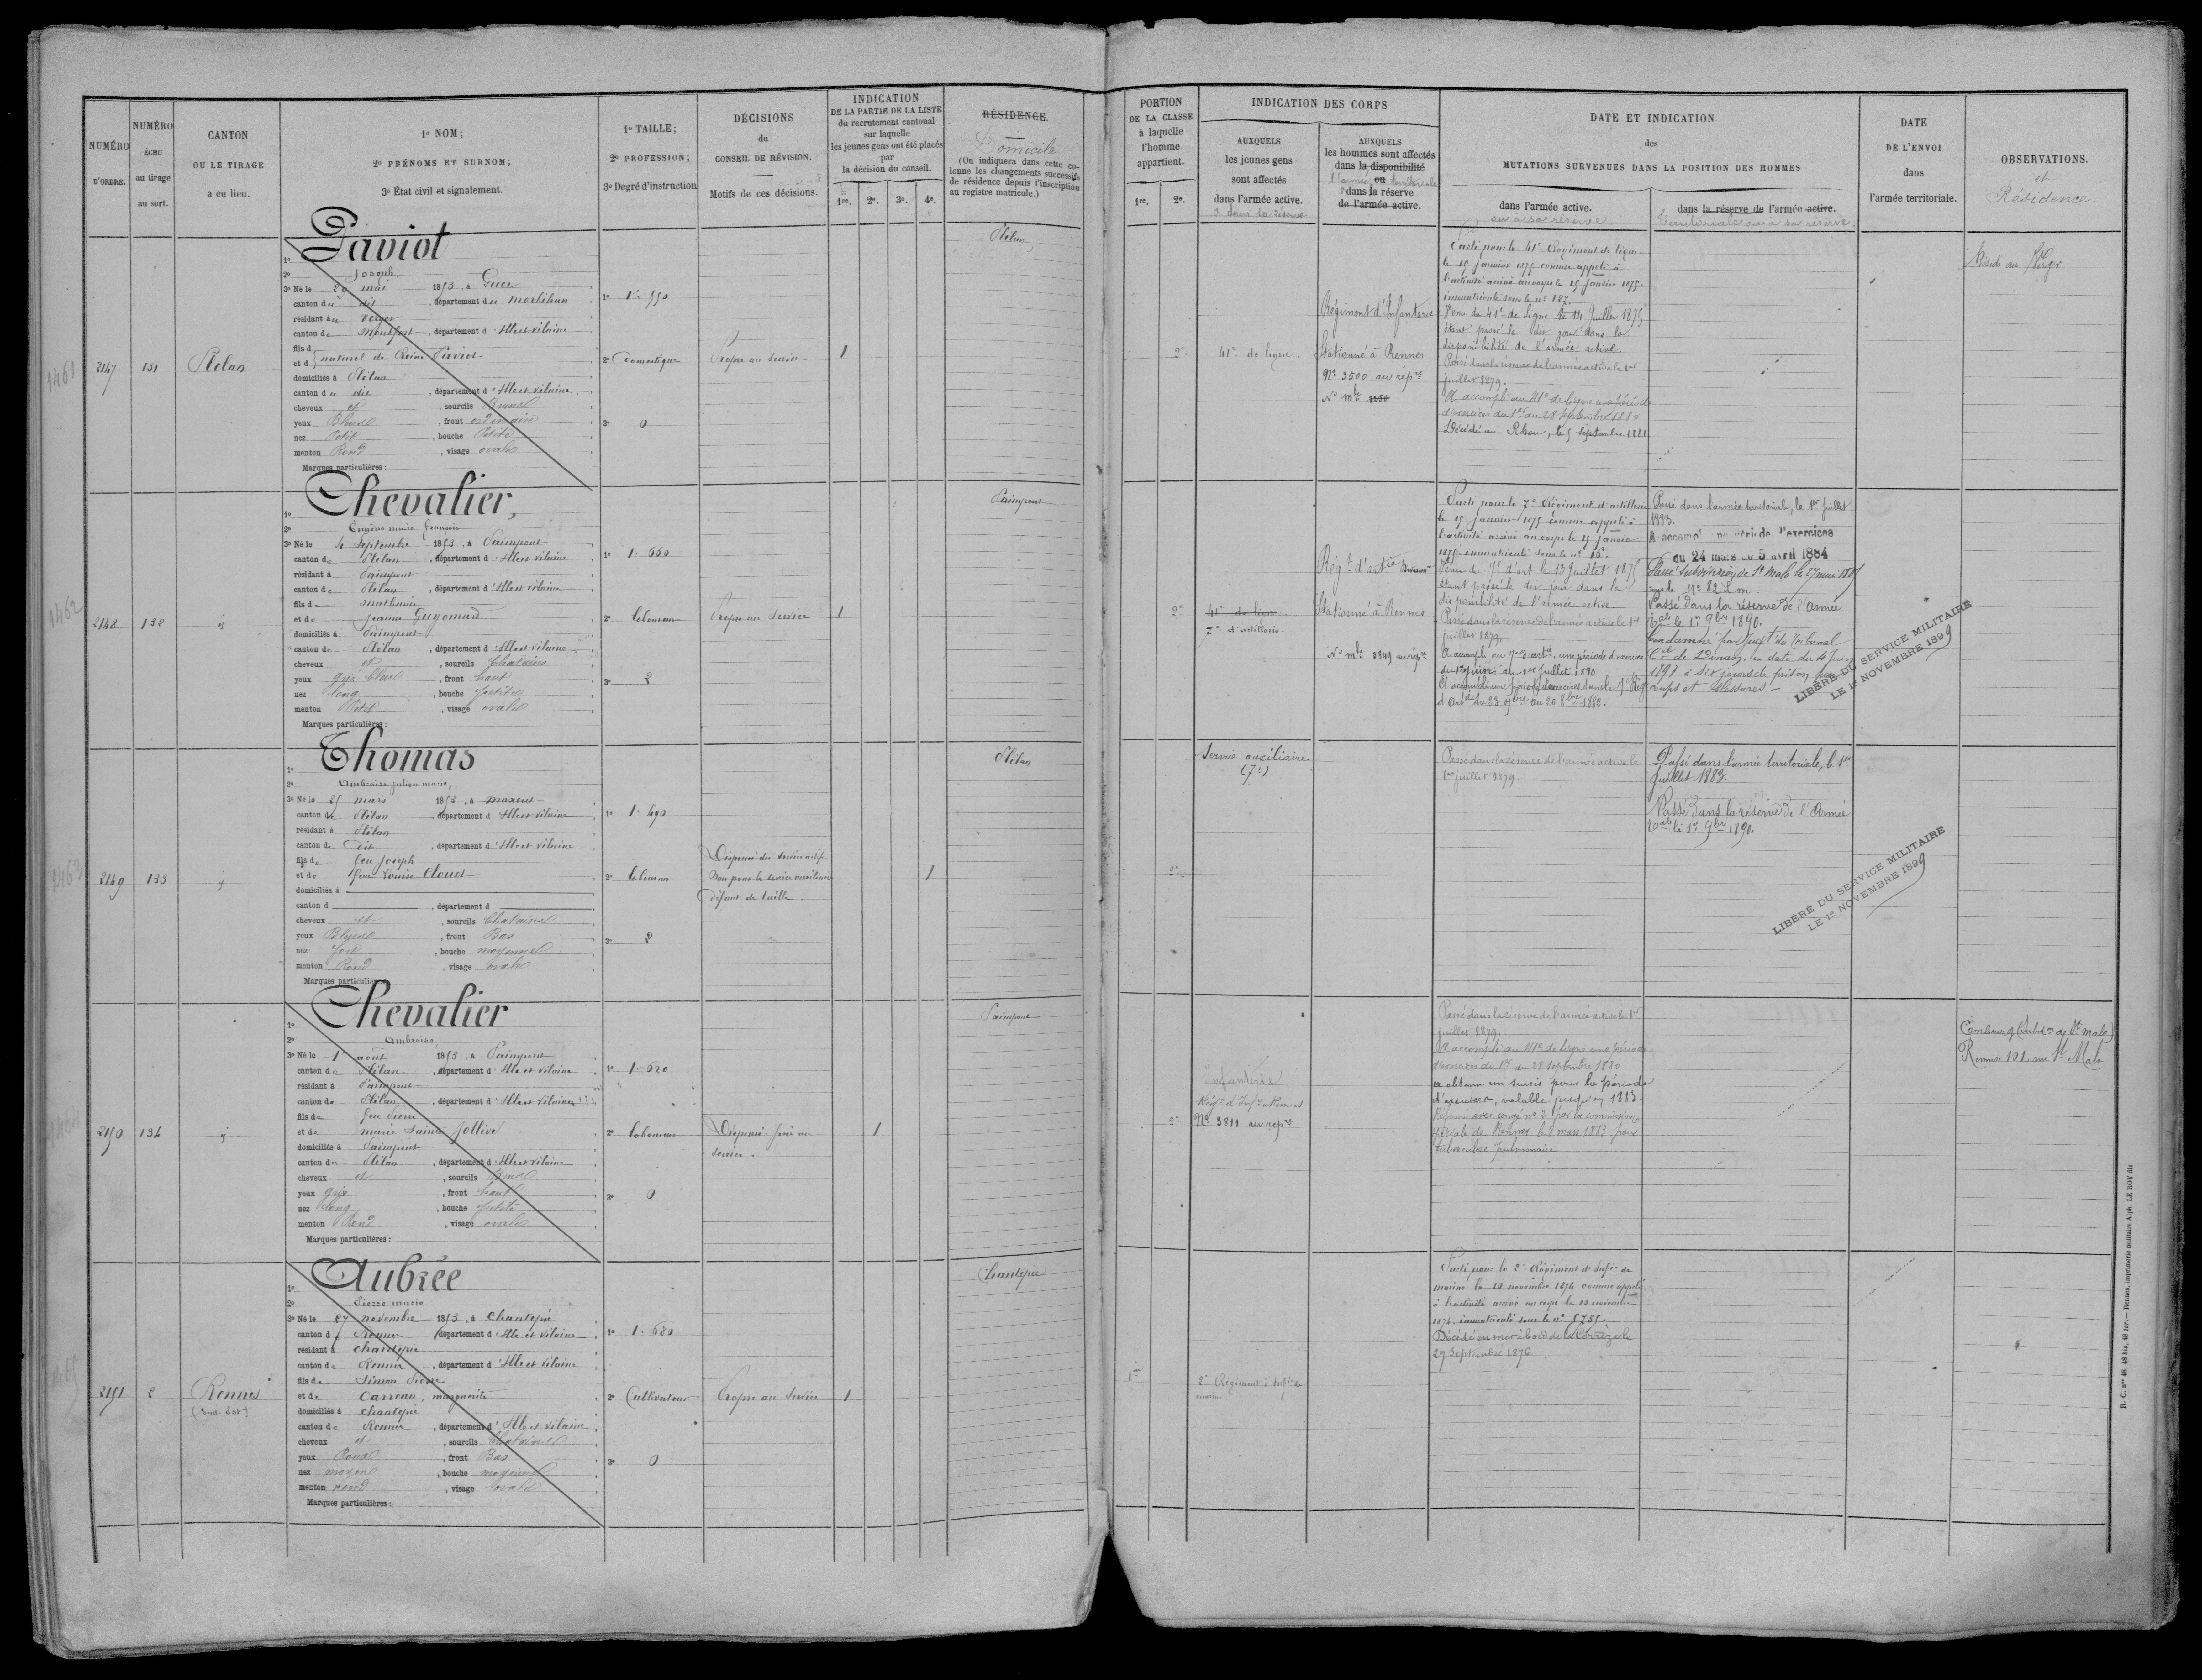 NUMÉRO
D'ORDRE.
NUMÉRO
ÉCHU
au tirage
au sort.
CANTON
OU LE TIRAGE
a eu lieu.
1º NOM;
2º PRÉNOMS ET SURNOM;
3º État civil et signalement.
1º TAILLE;
2º PROFESSION;
3º Degré d'instruction
DÉCISIONS
du
CONSEIL DE RÉVISION.
Motifs de ces décisions.
INDICATION
DE LA PARTIE DE LA LISTE
du recrutement cantonal
sur laquelle
les jeunes gens ont été placés
par
la décision du conseil.
1re. 2e. 3e. 4e.
RÉSIDENCE.
Domicile
(On indiquera dans cette co-
lonne les changements successifs
de résidence depuis l'inscription
au registre matricule.)
2147
131
Plélan
1º Paviot
2º Joseph
3º Né le 29 mai 1853, à Guer
canton du dit, département du Morbihan
résidant au Verger
canton de Montfort, département d'Ille et Vilaine
fils d
et d } naturel de Reine Paviot
domiciliés à Plélan
canton du dit, département d'Ille et Vilaine
cheveux et, sourcils Bruns
yeux Bleus, front ordinaire
nez Petit, bouche Petite
menton Rond, visage ovale
Marques particulières:
1º 1.550
2º Domestique
3º 0
Propre au service
1
Plélan
2148
132
1º Chevalier,
2º Eugène marie françois
3º Né le 4 septembre 1853, à Paimpont
canton de Plélan, département d'Ille et Vilaine
résidant à Paimpont
canton de Plélan, département d'Ille et Vilaine
fils de Mathurin
et de Jeanne Guyomard
domiciliés à Paimpont
canton de Plélan, département d'Ille et Vilaine
cheveux et, sourcils Chatains
yeux gris bleus, front haut
nez long, bouche petite
menton Petit, visage ovale
Marques particulières:
1º 1.660
2º laboureur
3º 2
Propre au service
1
Paimpont
2149
133
1º Thomas
2º Ambroise julien marie,
3º Né le 25 mars 1853, à Maxent
canton de Plélan, département d'Ille et Vilaine
résidant à Plélan
canton du dit, département d'Ille et Vilaine
fils de feu Joseph
et de feue Louise Clouet
domiciliés à
canton d, département d
cheveux et, sourcils Chatains
yeux Bleus, front Bas
nez fort, bouche moyenne
menton Rond, visage ovale
Marques particulières
1º 1.490
2º laboureur
3º 2
Dispensé du service actif.
Bon pour le service auxiliaire
défaut de taille.
1
Plélan
2150
134
1º Chevalier
2º Ambroise,
3º Né le 1er août 1853, à Paimpont
canton de Plélan, département d'Ille et Vilaine
résidant à Paimpont
canton de Plélan, département d'Ille et Vilaine
fils de feu Pierre
et de marie Jollive
domiciliés à Paimpont
canton de Plélan, département d'Ille et Vilaine
cheveux et, sourcils Bruns
yeux gris, front haut
nez long, bouche petite
menton Rond, visage ovale
Marques particulières:
1º 1.620
2º laboureur
3º 0
Dispensé frère au
service.
1
Paimpont
2151
2
Rennes
(Sud-Est)
1º Aubrée
2º Pierre marie
3º Né le 27 novembre 1853, à Chantepie
canton de Rennes, département d'Ille et Vilaine
résidant à Chantepie
canton de Rennes, département d'Ille et Vilaine
fils de Simon Pierre
et de Carreau, marguerite
domiciliés à Chantepie
canton de Rennes, département d'Ille et Vilaine
cheveux et, sourcils Chatains
yeux Roux, front Bas
nez moyen, bouche moyenne
menton rond, visage ovale
Marques particulières:
1º 1.680
2º Cultivateur
3º 0
Propre au service
1
Chantepie
PORTION
DE LA CLASSE
à laquelle
l'homme
appartient.
1re. 2e.
INDICATION DES CORPS
AUXQUELS
les jeunes gens
sont affectés
dans l'armée active.
et dans la réserve
AUXQUELS
les hommes sont affectés
dans la disponibilité
ou
l'armée territoriale
dans la réserve
de l'armée active.
DATE ET INDICATION
des
MUTATIONS SURVENUES DANS LA POSITION DES HOMMES
dans l'armée active.
ou à sa réserve
dans la réserve de l'armée active.
territoriale ou à sa réserve.
DATE
DE L'ENVOI
dans
l'armée territoriale.
OBSERVATIONS.
et
Résidence
2e
41e de ligne.
Régiment d'Infanterie
Stationné à Rennes
No 3500 au rép re
No mle
Parti pour le 41e Régiment de ligne
le 15 janvier 1875 comme appelé à
l'activité arrivé au corps le 15 janvier 1875.
immatriculé sous le no 187.
Venu du 41e de Ligne le 14 Juillet 1875
étant passé le dit jour dans la
disponibilité de l'armée active
Passé dans la réserve de l'armée active le 1er
juillet 1879.
A accompli au 41e de ligne une période
d'exercices du 1er au 28 septembre 1880
Décédé au Rheu, le 5 septembre 1881
Réside au Verger
2e
41e de ligne
7e d'artillerie
Rég t d'artie
Stationné à Rennes
No mle 2849 au rép re
Parti pour le 7e Régiment d'artillerie
le 15 janvier 1875 comme appelé à
l'activité arrivé au corps le 15 janvier
1875 immatriculé sous le no 16.
Venu du 7e d'art. le 13 Juillet 1875
étant passé le dit jour dans la
disponibilité de l'armée active.
Passé dans la réserve de l'armée active le 1er
juillet 1879.
A accompli au 7e d'artie une période d'exercice
du au 1er Juillet 1880
A accompli une période d'exercices dans le 7e Rég
d'Artie du 23 7bre au 20 8bre 1882.
Passé dans l'armée territoriale, le 1er juillet
1883.
A accompli une période d'exercices
du 24 mars au 5 avril 1884
Passé subdivision de St Malo le 27 mai 1885
sur le no 82 L m
Passé dans la réserve de l'Armée
tale le 1er 9bre 1890.
Condamné par Jugt du Tribunal
Cel de Dinan, en date du 4 Juin
1891 à six jours de prison pour
coups et blessures -
LIBÉRÉ DU SERVICE MILITAIRE
LE 1er NOVEMBRE 1899
Service auxiliaire
(7e)
2e
Passé dans la réserve de l'armée active le
1er juillet 1879.
Passé dans l'armée territoriale, le 1er
Juillet 1883.
Passé dans la réserve de l'Armée
tale le 1er 9bre 1890.
LIBÉRÉ DU SERVICE MILITAIRE
LE 1er NOVEMBRE 1899
2e
Infanterie
Régt d'Infie Rennes
No 3811 au rep re
Passé dans la réserve de l'armée active le 1er
juillet 1879.
A accompli au 41e de ligne une période
d'exercices du 1er au 28 septembre 1880
a obtenu un sursis pour la période
d'exercices, valable jusqu'en 1883.
Réformé avec congé no 2 par la commission
spéciale de Rennes le 8 mars 1883 pour
tuberculose pulmonaire.
Combourg (Subd on de St Malo)
Rennes 101, rue St Malo
1re
2e Régiment d'Infie de
marine.
Parti pour le 2e Régiment d'Infie de
marine le 10 novembre 1874 comme appelé
à l'activité arrivé au corps le 10 novembre
1874 immatriculé sous le no 5755.
Décédé en mer à bord de la Corrèze le
29 Septembre 1876
R. C. nos 48, 48 bis, 48 ter. — Rennes, imprimerie militaire Alph. LE ROY fils